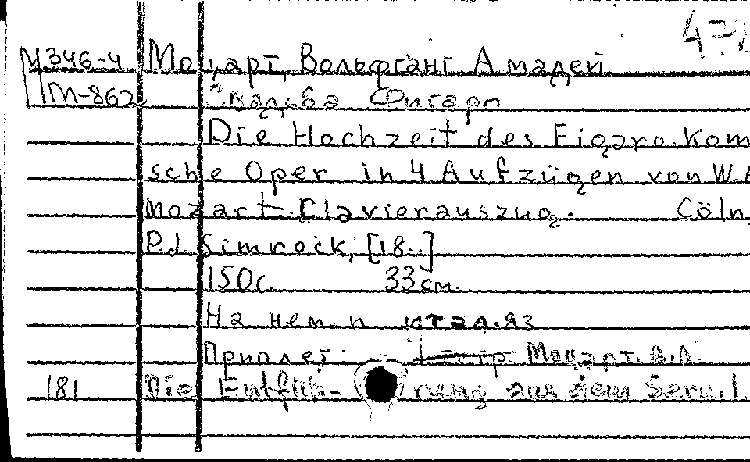 47
М346-4 Моцарт, Вольфганг Амадей
М-862 Свадьба Фигаро
Die Hochzeit des Figaro. Kom
sche Oper in 4 Aufzügen von W A
Mozart. Clavierauszug. Cöln,
P.J. Simrock, [18..]
150 с. 33 см.
На нем. и итал. яз
Приплет: Моцарт. В.А.
181 Die Entfüh-rung aus dem Serail